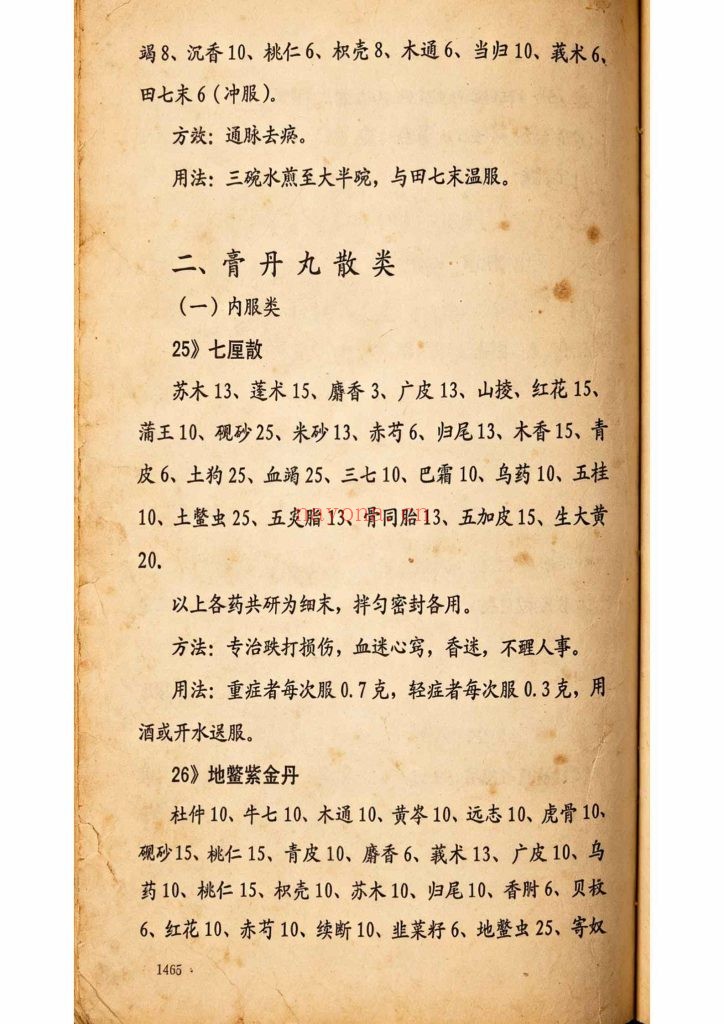 竭8、沉香10、桃仁6、枳壳8、木通6、当归10、莪术6、
田七末6(冲服)。
方效：通脉去瘀。
用法：三碗水煎至大半碗，与田七末温服。
二、膏丹丸散类
(一)内服类
25》七厘散
苏木13、莲术15、麝香3、广皮13、山掕、红花15、
蒲王10、砚砂25、米砂13、赤芍6、归尾13、木香15、青
皮6、土狗25、血竭25、三七10、巴霜10、乌药10、五桂
10、土鳖虫25、五灾脂13、骨同胎13、五加皮15、生大黄
20.
以上各药共研为细末，拌匀密封各用。
方法：专治跌打损伤，血迷心窍，香迷，不理人事。
用法：重症者每次服0.7克，轻症者每次服0.3克，用
酒或开水送服。
26》地鳖紫金丹
杜仲10、牛七10、木通10、黄岑10、远志10、虎骨10、
砚砂15、桃仁15、青皮10、麝香6、莪术13、广皮10、乌
药10、桃仁15、枳壳10、苏木10、归尾10、香附6、贝枝
6、红花10、赤芍10、续断10、韭菜籽6、地鳖虫25、寄奴
1465